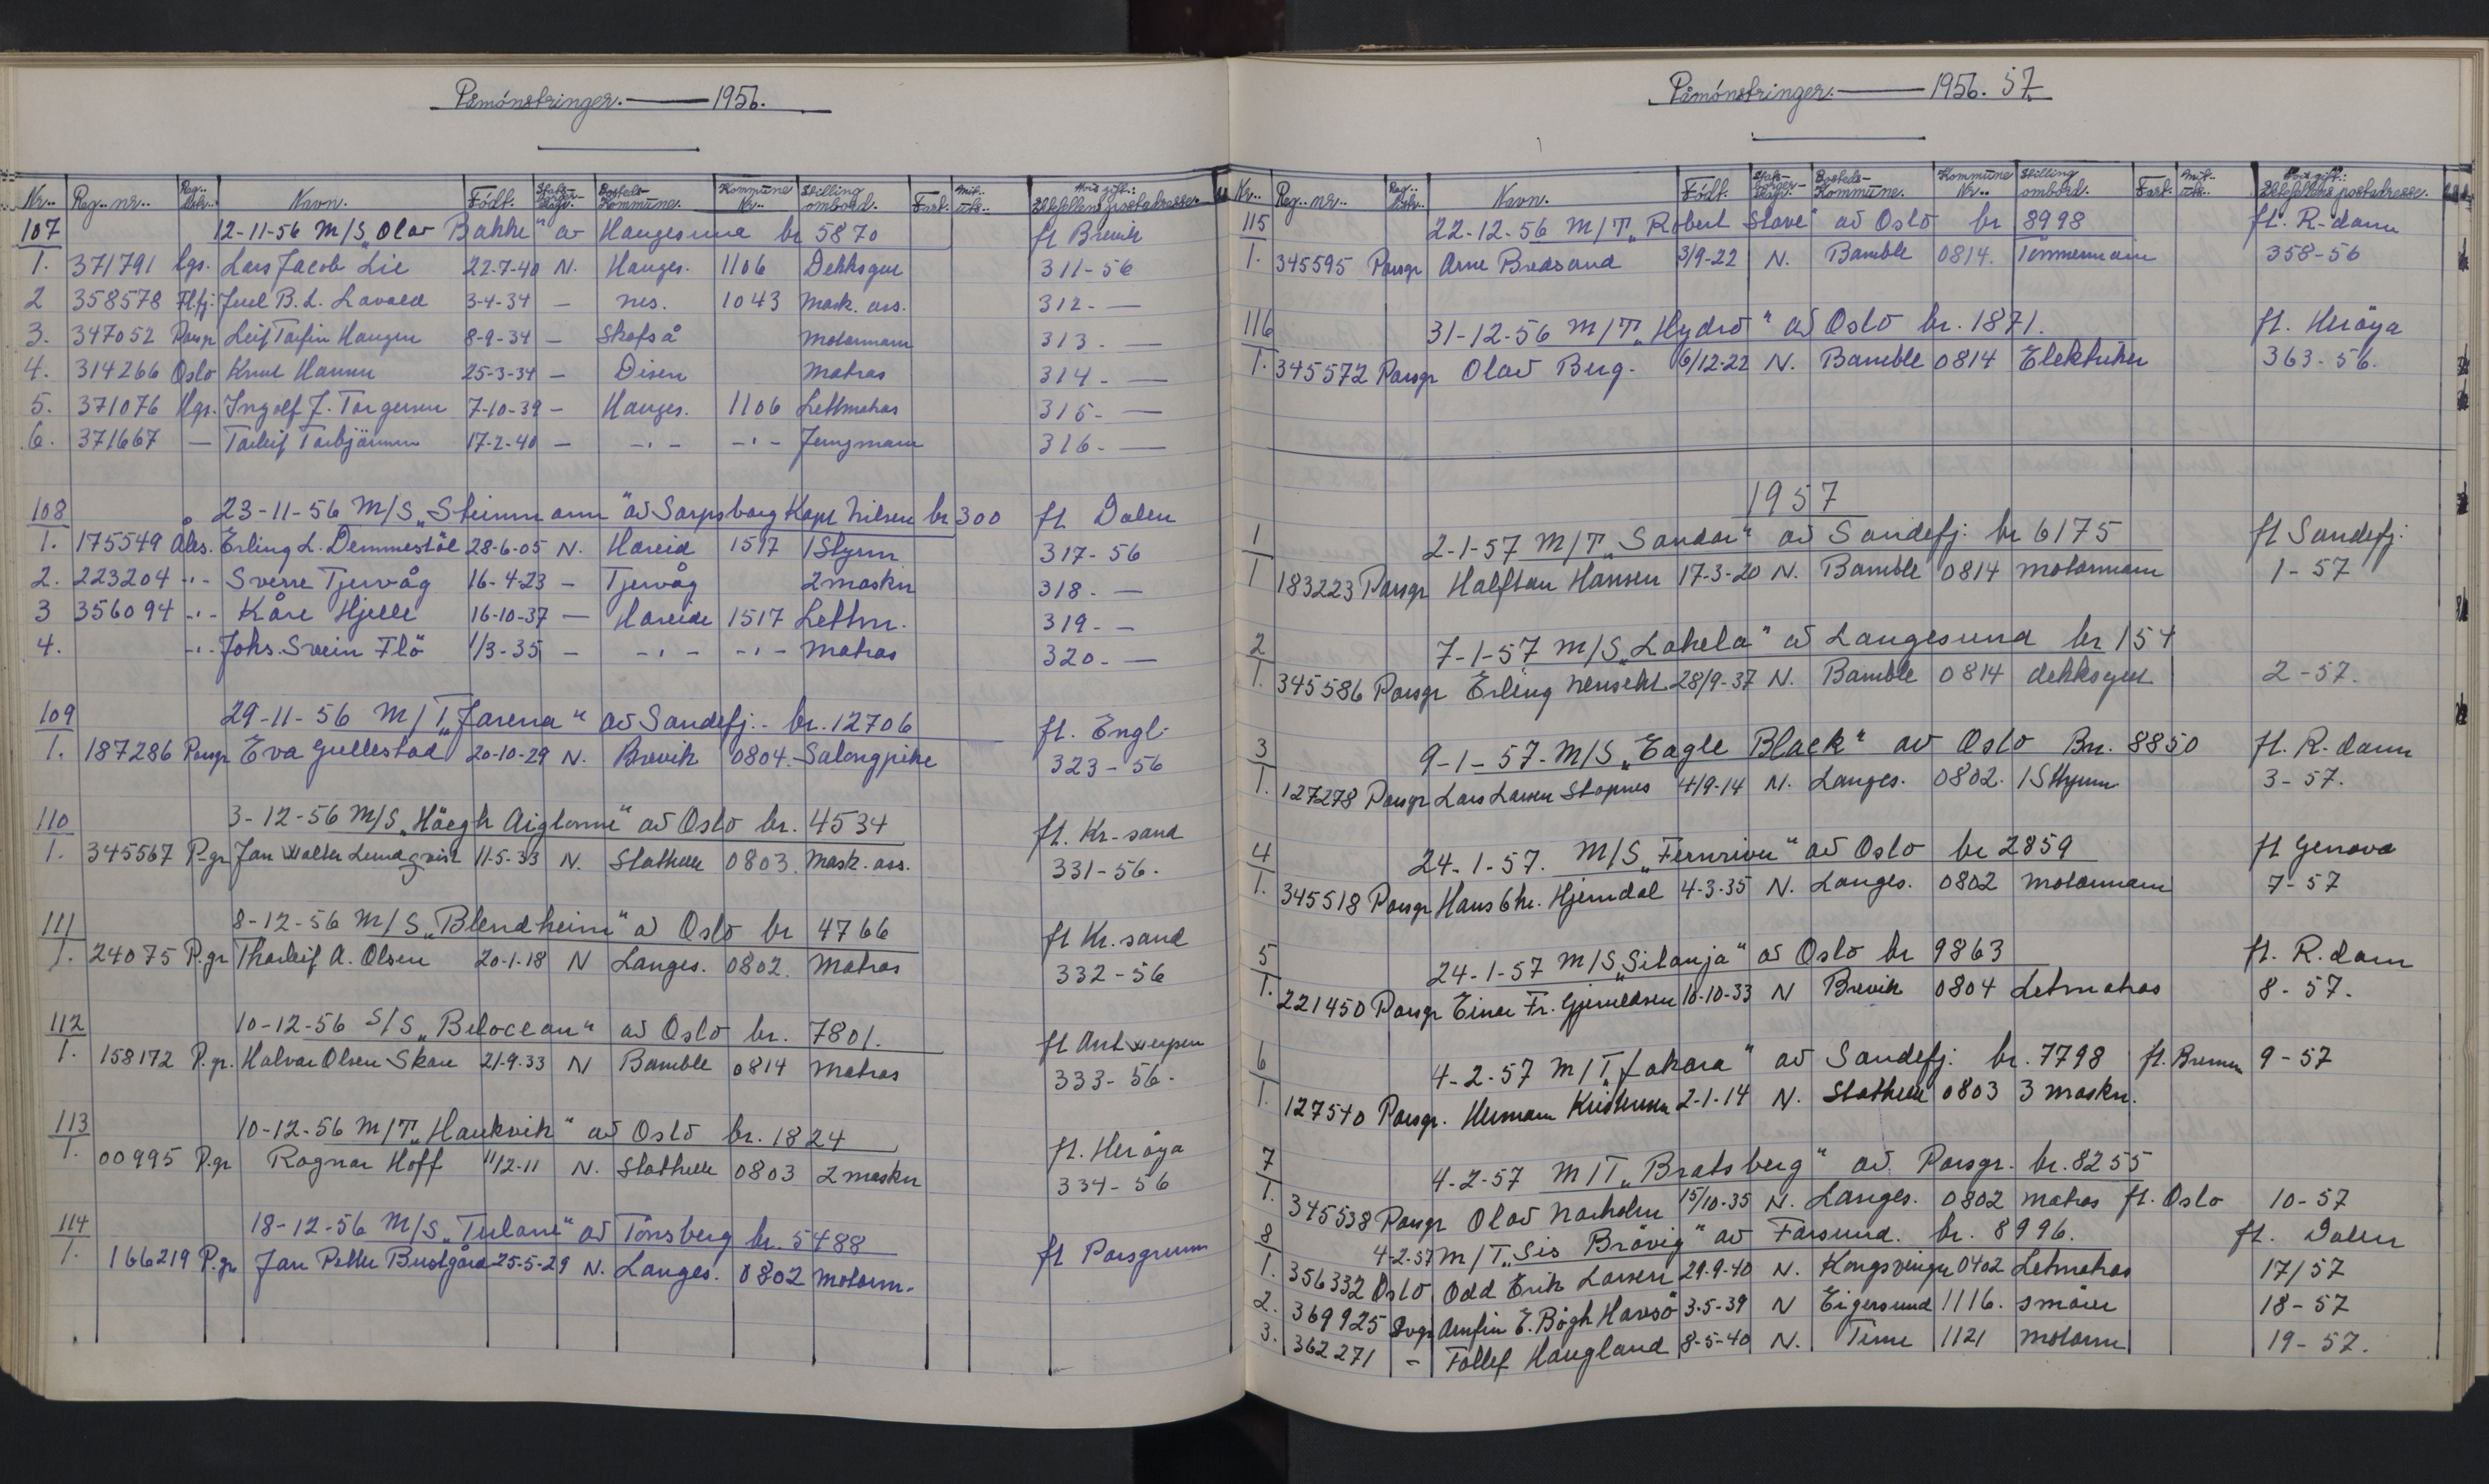 Påmönstringer. — 1956.
Nr.. Reg.. nr.. Reg.. distr.. Navn. Födt. Stats- borger- Bosteds- Kommune. Kommune Nr.. Stilling ombord. Fart.
107 12-11-56 M/S „Olav Bakke" av Haugesund br 5870 ft Brevik
1. 371791 Hgs. Lars Jacob Lie 22-7-40 N. Hauges. 1106 Dekksgut 311-56
2 358578 Flfj. Juel B. L. Lavold 3-4-34 — nes. 1043 Mask. ass. 312- —
3. 347052 Porsgr Leif Torfin Haugen 8-9-34 — Skafså motormann 313- —
4. 314266 Oslo Knut Hansen 25-3-34 — Disen Matros 314- —
5. 371076 Hgs. Ingolf J. Torgersen 7-10-39 — Hauges. 1106 Lettmatros 315- —
6. 371667 — Torleif Torbjörnsen 17-2-40 — -"- -"- Jungmann 316- —
108 23-11-56 M/S „Steinmann" av Sarpsborg Kapt Nilsen br 300 ft Dalen
1. 175549 Åles. Erling L. Demmestöl 28-6-05 N. Hareid 1517 1 Styrm 317-56
2. 223204 -"- Sverre Tjervåg 16-4-23 — Tjervåg 2 maskn 318- —
3 356094 -"- Kåre Hjelle 16-10-37 — Hareide 1517 Lettm. 319- —
4. -"- Johs. Svein Flö 1/3-35 — -"- -"- Matros 320- —
109 29-11-56 M/T „Jarena" av Sandefj.- br. 12706 ft. Engl.
1. 187286 Porsgr Eva Gullestad 20-10-29 N. Brevik 0804. Salongpike 323-56
110 3-12-56 M/S „Höegh Aiglonne" av Oslo br. 4534 ft. Kr-sand
1. 345567 P-gr Jan Walter Lundqvist 11-5-33 N. Stathelle 0803. Mask. ass. 331-56.
111 8-12-56 M/S „Blendheim" av Oslo br 4766 ft Kr. sand
1. 24075 P.gr Thorleif A. Olsen 20-1-18 N Langes. 0802. Matros 332-56
112 10-12-56 S/S „Belocean" av Oslo br. 7801. ft Antwerpen
1. 158172 P.gr. Halvor Olsen Skau 21-9.33 N Bamble 0814 Matros 333-56.
113 10-12-56 M/T „Haukvik" av Oslo br. 1824 ft. Heröya
1. 00995 P.gr Ragnar Hoff 11/2-11 N. Stathelle 0803 2 maskn 334-56
114 18-12-56 M/S „Tulane" av Tönsberg br. 5488 ft Porsgrunn
1. 166219 P.gr Jan Petter Bustgård 25-5-29 N. Langes. 0802 motorm.
Påmönstringer. — 1956. 57
Nr.. Reg.. nr.. Reg.. distr.. Navn. Födt. Stats- borger- Bosteds- Kommune. Kommune Nr.. Stilling ombord. Fart.
115 22-12-56 M/T „Robert Stove" av Oslo br 8998 ft. R-dam
1. 345595 Porsgr Arne Bredsand 3/9-22 N. Bamble 0814. Tömmermann 358-56
116 31-12-56 M/T „Hydro" av Oslo br. 1871. ft. Heröya
1. 345572 Porsgr Olav Berg. 6/12-22 N. Bamble 0814 Elektriker 363-56.
1957
1 2-1-57 M/T „Sandar" av Sandefj. br 6175 ft Sandefj.
1 183223 Porsgr Halftan Hansen 17-3-20 N. Bamble 0814 motormann 1-57
2 7-1-57 M/S „Lakela" av Langesund br 154
1. 345586 Porsgr Erling 28/9-37 N. Bamble 0814 dekksgut 2-57.
3 9-1-57. M/S „Eagle Black" av Oslo Bn. 8850 ft. R-dam
1. 127278 Porsgr Lars Larsen Stopnes 4/9-14 N. Langes. 0802. 1 Styrm 3-57.
4 24-1-57. M/S „Fernriver" av Oslo br 2859 ft Genova
1. 345518 Porsgr Hans Chr. Hjemdal 4-3-35 N. Langes. 0802 motormann 7-57
5 24-1-57 M/S „Silanja" av Oslo br 9863 ft. R.dam
1. 221450 Porsgr Einar Fr. Gjermundsen 10-10-33 N Brevik 0804 Letmatros 8-57.
6 4-2-57 M/T „Jakara" av Sandefj. br. 7798 ft. Bremen 9-57
1. 127540 Porsgr. Hermann Kristensen 2-1-14 N. Stathelle 0803 3 maskn.
7 4-2-57 M/T „Bratsberg" av. Porsgr. br. 8255
1. 345538 Porsgr Olav Norholm 15/10-35 N. Langes. 0802 matros ft. Oslo 10-57
8 4-2-57 M/T „Sis Brövig" av Farsund. br. 8996. ft. Dalen
1. 356332 Oslo Odd Erik Larsen 29-9-40 N. Kongsvinger 0402 Letmatros 17/57
2. 369925 Svgr Arnfin E. Bögh Havsö 3-5-39 N Eigersund 1116. smörer 18-57
3. 362271 — Follef Haugland 8-5-40 N. Time 1121 motorm 19-57.